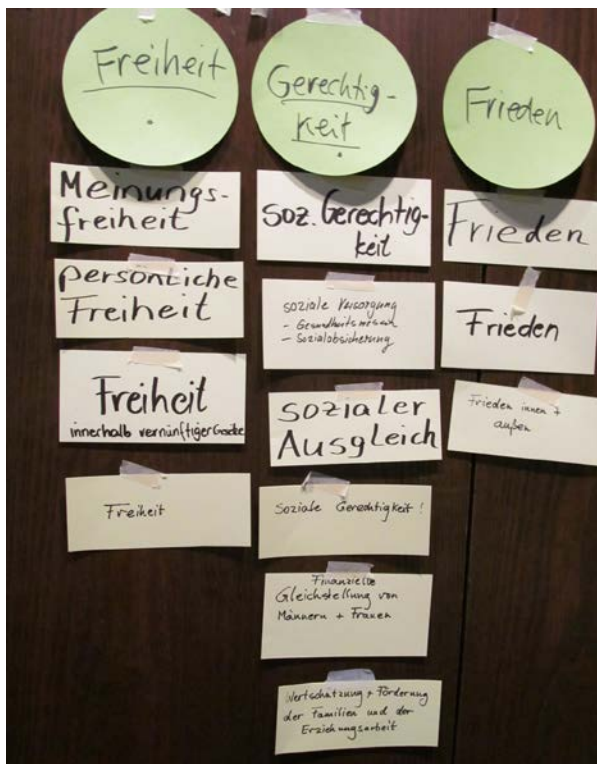 Freiheit
Meinungs-
freiheit
persönliche
Freiheit
Freiheit
innerhalb vernünftiger Gesetze
Freiheit
Gerechtig-
keit
soz. Gerechtig-
keit
soziale Versorgung
- Gesundheitswesen
- Sozialabsicherung
sozialer
Ausgleich
Soziale Gerechtigkeit!
Finanzielle
Gleichstellung von
Männern + Frauen
Wertschätzung + Förderung
der Familien und der
Erziehungsarbeit
Frieden
Frieden
Frieden
Frieden innen +
außen